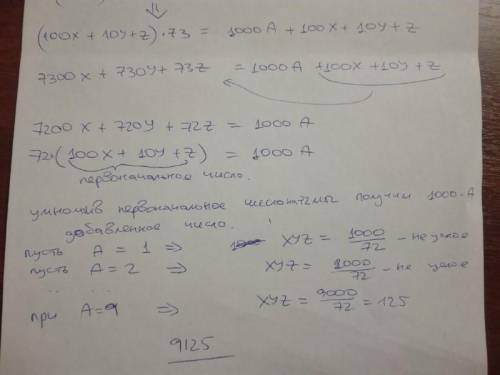 (100X + 10Y + Z) · 73 = 1000A + 100X + 10Y + Z
7300X + 730Y + 73Z = 1000A + 100X + 10Y + Z
7200X + 720Y + 72Z = 1000A
72·(100X + 10Y + Z) = 1000A
первоначальное число.
умножив первоначальное число получим 1000·A
добавленное число.
пусть A = 1 ⇒ XYZ = 1000/72 - не целое
пусть A = 2 ⇒ XYZ = 2000/72 - не целое
при A=9 ⇒ XYZ = 9000/72 = 125
9125